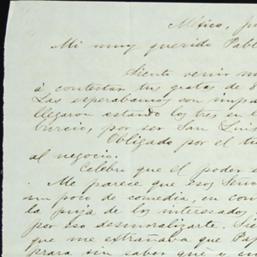 Méjico,
Mi muy querido Pabl
Siento venir
á contestar tus gratas de 8
Las esperabamos con impa
llegaron estando los tres en l
por ser San Luis
Obligado por el
al negocio.
Celebro que el poder
Me parece que esos Seño
un poco de comedia, en con
la puja de los interesados,
por eso desmoralizarte. Sie
que me estrañaba que Pa
prara sin saber que